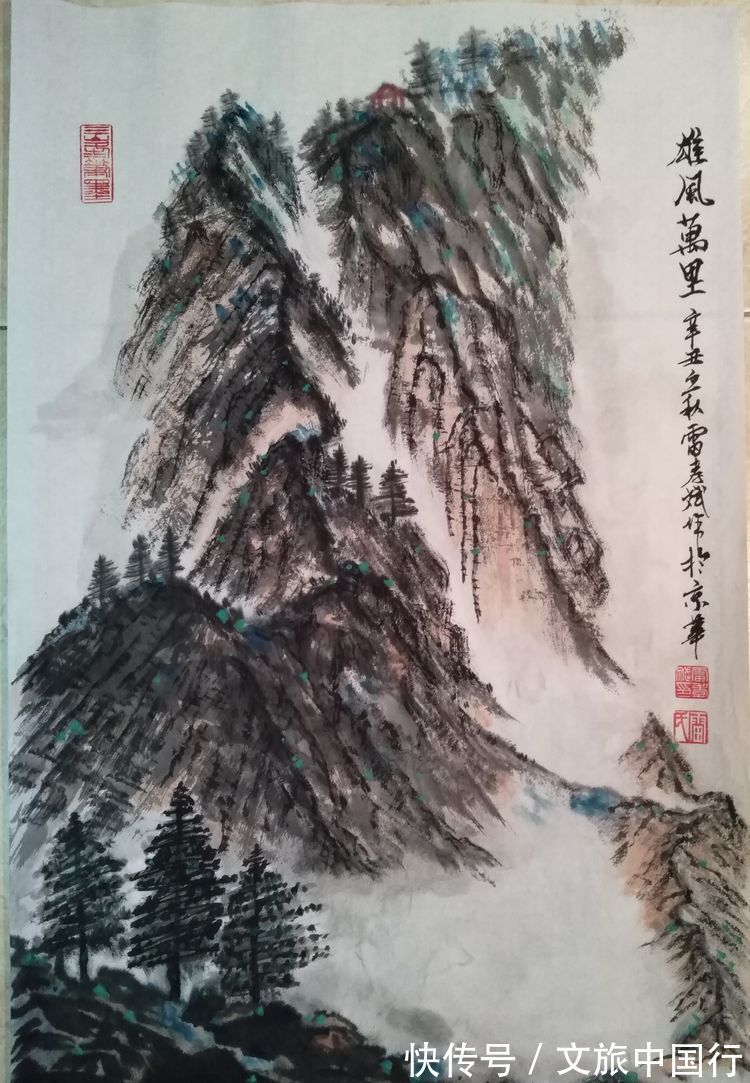 雄风萬里 辛丑之秋雷孝斌作於京華
快传号 / 文旅中国行